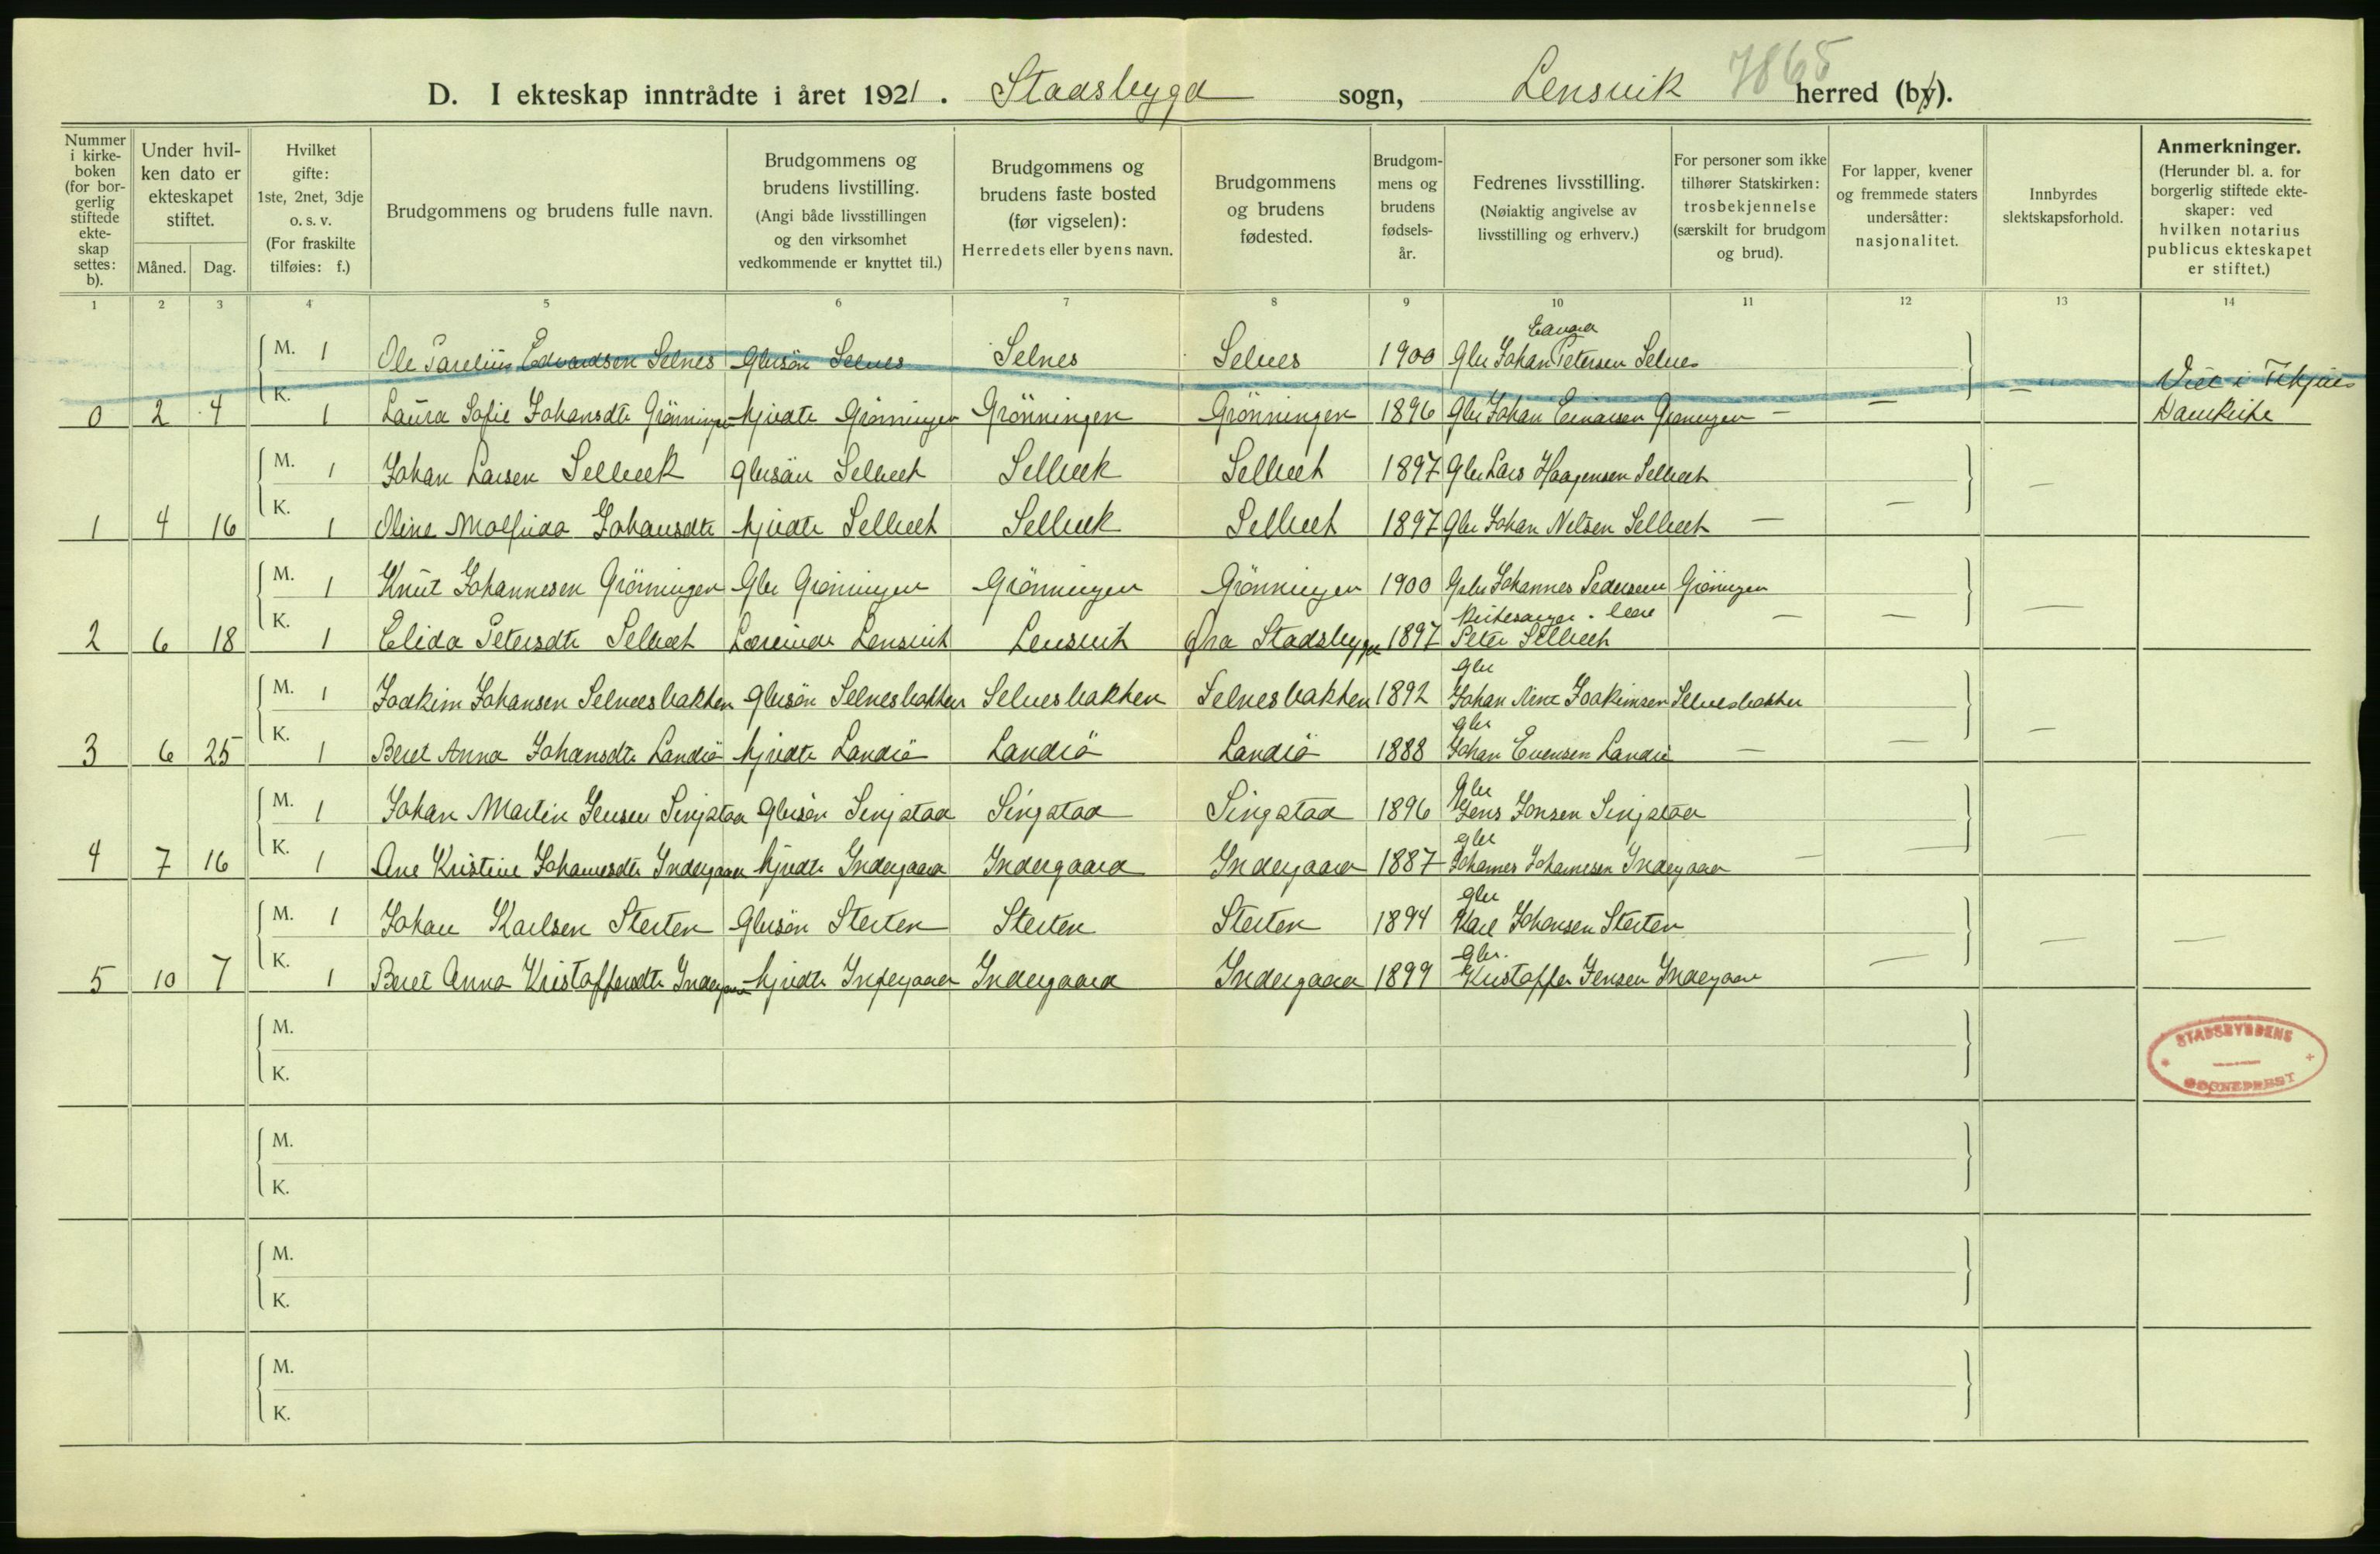 7865
D. I ekteskap inntrådte i året 1921. Stadsbygd sogn, Lensvik herred (by).
Nummer i kirke-boken (for bor-gerlig stiftede ekte-skap settes: b).
Under hvil-ken dato er ekteskapet stiftet.
Måned. Dag.
Hvilket gifte: 1ste, 2net, 3dje o. s. v. (For fraskilte tilføies: f.)
Brudgommens og brudens fulle navn.
Brudgommens og brudens livstilling. (Angi både livsstillingen og den virksomhet vedkommende er knyttet til.)
Brudgommens og brudens faste bosted (før vigselen): Herredets eller byens navn.
Brudgommens og brudens fødested.
Brudgom-mens og brudens fødsels-år.
Fedrenes livsstilling. (Nøiaktig angivelse av livsstilling og erhverv.)
For personer som ikke tilhører Statskirken: trosbekjennelse (særskilt for brudgom og brud).
For lapper, kvener og fremmede staters undersåtter: nasjonalitet.
Innbyrdes slektskapsforhold.
Anmerkninger. (Herunder bl. a. for borgerlig stiftede ekte-skaper: ved hvilken notarius publicus ekteskapet er stiftet.)
1 2 3 4 5 6 7 8 9 10 11 12 13 14
Edvard
M. 1 Ole Parelius Edvardsen Selnes Gbrsön Selnes Selnes Selnes 1900 Gbr Johan Petersen Selnes
Viet i
0 2 4 K. 1 Laura Sofie Johansdtr Grönningen hjvdtr Grönningen Grönningen Grönningen 1896 Gbr Johan Einarsen Grönningen — — —
M. 1 Johan Larsen Selbæk gbrsön Selbæk Selbæk Selbæk 1897 Gbr Lars Haagensen Selbæk
1 4 16 K. 1 Oline Molfrida Johansdtr hjvdtr Selbæk Selbæk Selbæk 1897 Gbr Johan Nilsen Selbæk — — —
M. 1 Knut Johannesen Grönningen Gbr Grönningen Grönningen Grönningen 1900 Gbr Johannes Pedersen Grönningen
Kirkesanger
2 6 18 K. 1 Elida Petersdtr Selbæk Lærerinde Lensvik Lensvik fra Stadsbygd 1897 Peter Selbæk — — —
Gbr
M. 1 Joakim Johansen Selnesbakken gbrsön Selnesbakken Selnesbakken Selnesbakken 1892 Johan Arnt Joakimsen Selnesbakken
gbr
3 6 25 K. 1 Beret Anna Johansdtr Landrö hjvdtr Landrö Landrö Landrö 1888 Johan Evensen Landrö — — —
Gbr
M. 1 Johan Martin Jensen Singstad Gbrsön Singstad Singstad Singstad 1896 Jens Jonsen Singstad
gbr
4 7 16 K. 1 Ane Kristine Johannesdtr Indergaard hjvdtr Indergaard Indergaard Indergaard 1887 Johannes Johannesen Indergaard — — —
Gbr
M. 1 Johan Karlsen Sterten Gbrsön Sterten Sterten Sterten 1894 Karl Johansen Sterten
Gbr.
5 10 7 K. 1 Beret Anna Kristoffersdtr Indergaard hjvdtr Indergaard Indergaard Indergaard 1899 Kristoffer Jensen Indergaard — — —
M.
K.
STADSBYGDENS
SOGNEPREST
M.
K.
M.
K.
M.
K.